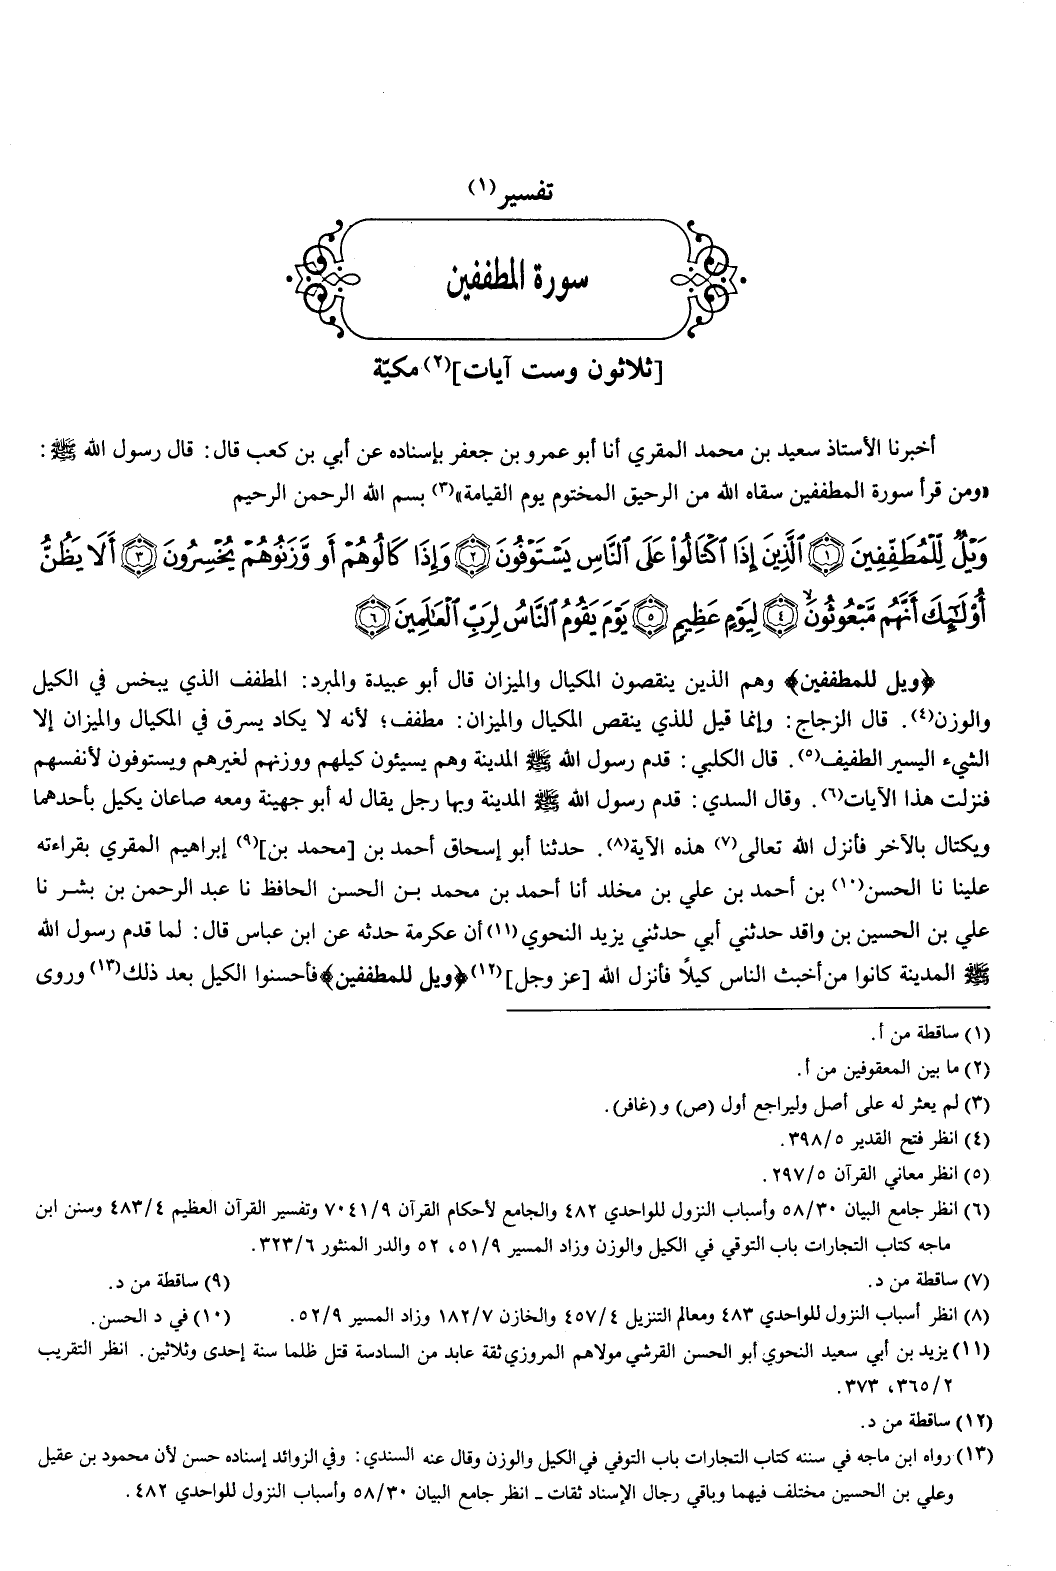 تفسير(١)
سورة المطففين
[ثلاثون وست آيات](٢) مكيّة
أخبرنا الأستاذ سعيد بن محمد المقري أنا أبو عمرو بن جعفر بإسناده عن أبي بن كعب قال: قال رسول الله ﷺ:
«ومن قرأ سورة المطففين سقاه الله من الرحيق المختوم يوم القيامة»(٣) بسم الله الرحمن الرحيم
وَيْلٌ لِّلْمُطَفِّفِينَ ﴿١﴾ ٱلَّذِينَ إِذَا ٱكْتَالُوا۟ عَلَى ٱلنَّاسِ يَسْتَوْفُونَ ﴿٢﴾ وَإِذَا كَالُوهُمْ أَو وَّزَنُوهُمْ يُخْسِرُونَ ﴿٣﴾ أَلَا يَظُنُّ
أُو۟لَـٰٓئِكَ أَنَّهُم مَّبْعُوثُونَ ﴿٤﴾ لِيَوْمٍ عَظِيمٍ ﴿٥﴾ يَوْمَ يَقُومُ ٱلنَّاسُ لِرَبِّ ٱلْعَـٰلَمِينَ ﴿٦﴾
﴿ويل للمطففين﴾ وهم الذين ينقصون المكيال والميزان قال أبو عبيدة والمبرد: المطفف الذي يبخس في الكيل
والوزن(٤). قال الزجاج: وإنما قيل للذي ينقص المكيال والميزان: مطفف؛ لأنه لا يكاد يسرق في المكيال والميزان إلا
الشيء اليسير الطفيف(٥). قال الكلبي: قدم رسول الله ﷺ المدينة وهم يسيئون كيلهم ووزنهم لغيرهم ويستوفون لأنفسهم
فنزلت هذا الآيات(٦). وقال السدي: قدم رسول الله ﷺ المدينة وبها رجل يقال له أبو جهينة ومعه صاعان يكيل بأحدهما
ويكتال بالآخر فأنزل الله تعالى(٧) هذه الآية(٨). حدثنا أبو إسحاق أحمد بن [محمد بن](٩) إبراهيم المقري بقراءته
علينا نا الحسن(١٠) بن أحمد بن علي بن مخلد أنا أحمد بن محمد بن الحسن الحافظ نا عبد الرحمن بن بشر نا
علي بن الحسين بن واقد حدثني أبي حدثني يزيد النحوي(١١) أن عكرمة حدثه عن ابن عباس قال: لما قدم رسول الله
ﷺ المدينة كانوا من أخبث الناس كيلًا فأنزل الله [عز وجل](١٢) ﴿ويل للمطففين﴾ فأحسنوا الكيل بعد ذلك(١٣) وروى
(١) ساقطة من أ.
(٢) ما بين المعقوفين من أ.
(٣) لم يعثر له على أصل وليراجع أول (ص) و(غافر).
(٤) انظر فتح القدير ٣٩٨/٥.
(٥) انظر معاني القرآن ٢٩٧/٥.
(٦) انظر جامع البيان ٥٨/٣٠ وأسباب النزول للواحدي ٤٨٢ والجامع لأحكام القرآن ٧٠٤١/٩ وتفسير القرآن العظيم ٤٨٣/٤ وسنن ابن
ماجه كتاب التجارات باب التوقي في الكيل والوزن وزاد المسير ٥١/٩، ٥٢ والدر المنثور ٣٢٣/٦.
(٧) ساقطة من د. (٩) ساقطة من د.
(٨) انظر أسباب النزول للواحدي ٤٨٣ ومعالم التنزيل ٤٥٧/٤ والخازن ١٨٢/٧ وزاد المسير ٥٢/٩. (١٠) في د الحسن.
(١١) يزيد بن أبي سعيد النحوي أبو الحسن القرشي مولاهم المروزي ثقة عابد من السادسة قتل ظلما سنة إحدى وثلاثين. انظر التقريب
٣٦٥/٢، ٣٧٣.
(١٢) ساقطة من د.
(١٣) رواه ابن ماجه في سننه كتاب التجارات باب التوفي في الكيل والوزن وقال عنه السندي: وفي الزوائد إسناده حسن لأن محمود بن عقيل
وعلي بن الحسين مختلف فيهما وباقي رجال الإسناد ثقات ـ انظر جامع البيان ٥٨/٣٠ وأسباب النزول للواحدي ٤٨٢.